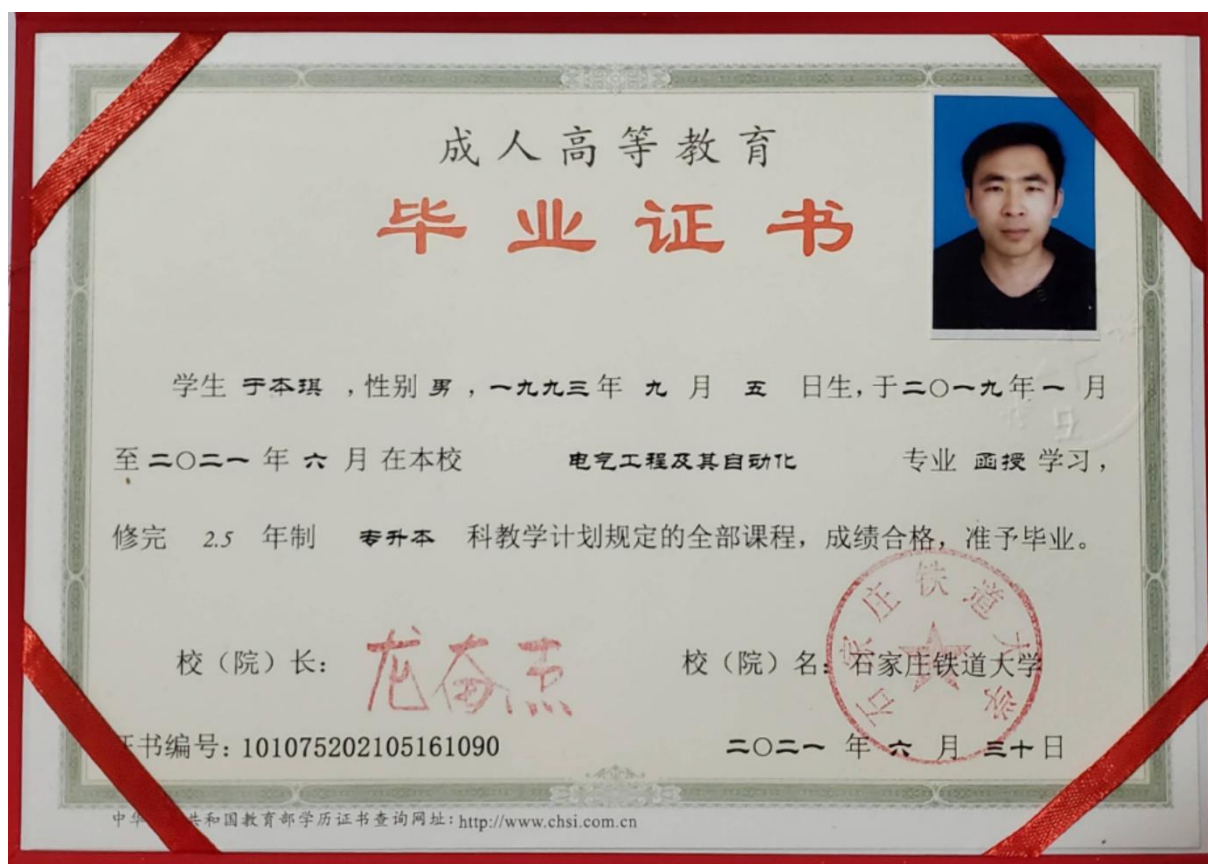 成人高等教育
毕业证书
学生 于本琪 ，性别 男 ，一九九三年 九 月 五 日生，于二〇一九年一月
至二〇二一年 六 月在本校 电气工程及其自动化 专业 函授 学习，
修完 2.5 年制 专升本 科教学计划规定的全部课程，成绩合格，准予毕业。
校（院）长： 龙奋杰 校（院）名：石家庄铁道大学
石家庄铁道大学
书编号：101075202105161090 二〇二一 年 六 月 三十日
中华 共和国教育部学历证书查询网址：http://www.chsi.com.cn